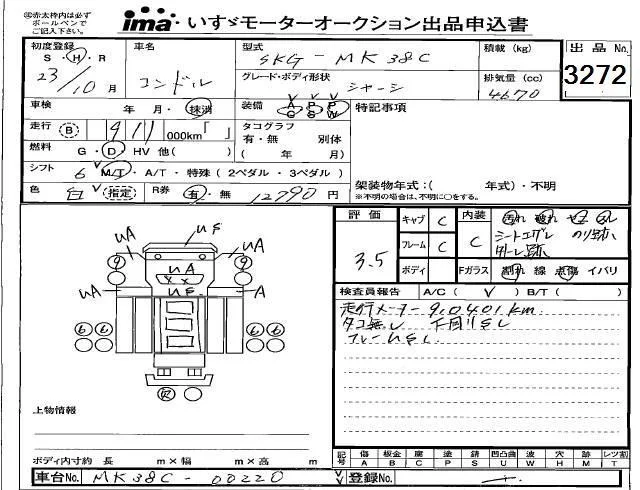 ㊟赤太枠内は必ず
ボールペンで
ご記入下さい。
ima いすゞモーターオークション出品申込書
初度登録 車名 型式 積載 (kg) 出品No.
S・H・R コンドル SKG-MK38C
23/10月 グレード・ボディ形状 シャーシ 排気量(cc) 4670 3272
車検 年 月・抹消 装備 A/C P/S P/W 特記事項
走行 B 911 000km「 」 タコグラフ
有・無 別体
燃料 G・D・HV 他( ) ( 年 月)
シフト 6 M/T・A/T・特殊(2ペダル・3ペダル)
架装物年式:( 年式)・不明
色 白 指定 R券 有・無 12790円 ※不明の場合は、不明に○をする。
評価 キャブ C 内装 汚れ 破れ
3.5 フレーム C C シートエグレ ノリ跡
ボディ Fガラス 割れ 線 点傷 イバリ
検査員報告 A/C( ) B/T( )
走行メーター 910401km
タコ無し 下回りSし
フレームUSし
上物情報
ボディ内寸約 長 m×幅 m×高 m
記号 傷A 板金B 腐C 塗P 錆S 凹凸曲U 波W 穴H 跡M レツ割T
車台No. MK38C-00220 登録No.